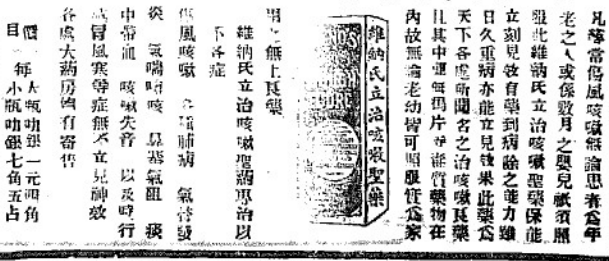 凡尋常傷風咳嗽無論患者為年
老之人或係數月之嬰兒祇須照
服此維納氏立治咳嗽聖藥保能
立刻見效有藥到病除之能力雖
日久重病亦能立見效果此藥為
天下各處所聞名之治咳嗽良藥
且其中毫無鴉片並毒質藥物在
內故無論老幼皆可照服實為家
維納氏立治咳嗽聖藥
用之無上良藥
維納氏立治咳嗽聖藥專治以
下各症
傷風咳嗽 各種肺病 氣管發
炎 氣喘哮咳 鼻塞氣阻 痰
中帶血 咳嗽失音 以及時行
感冒風寒等症無不立見神效
各處大藥房均有寄售
價目 每大瓶功銀一元四角
小瓶功銀七角五占